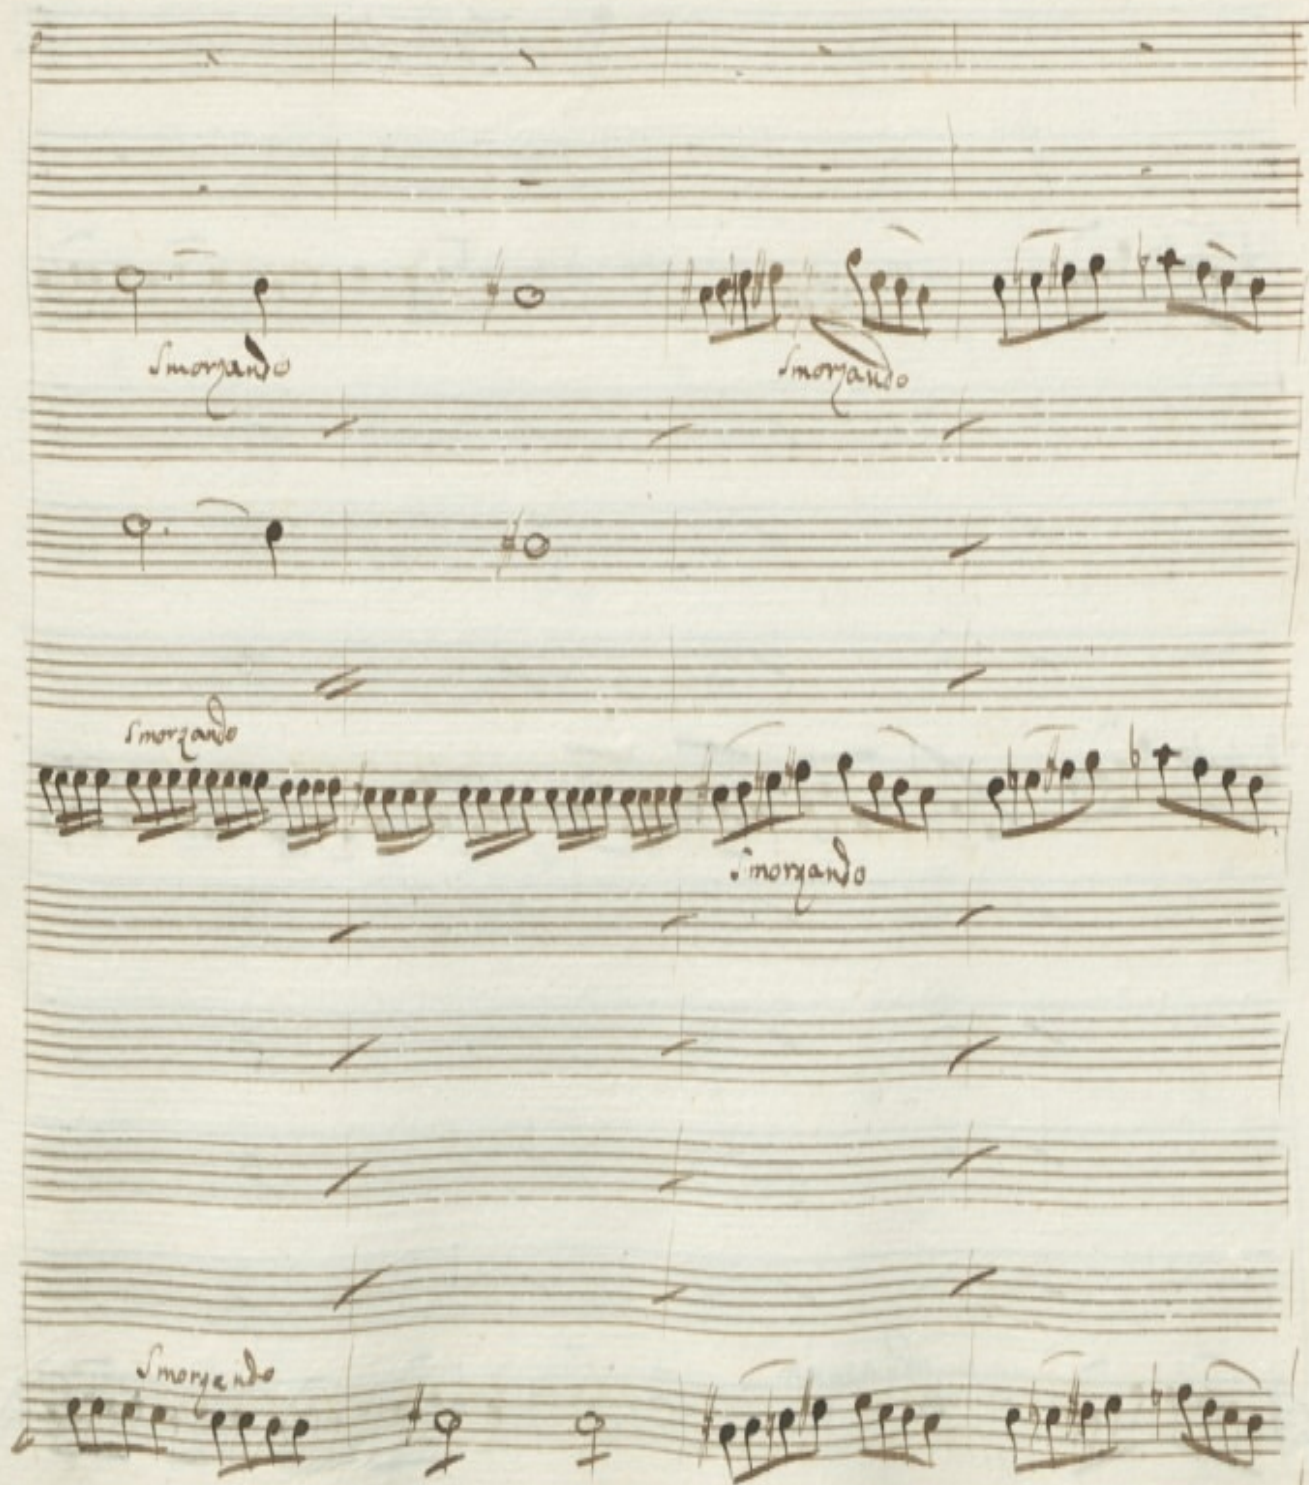 Smorzando
Smorzando
Smorzando
Smorzando
Smorzando